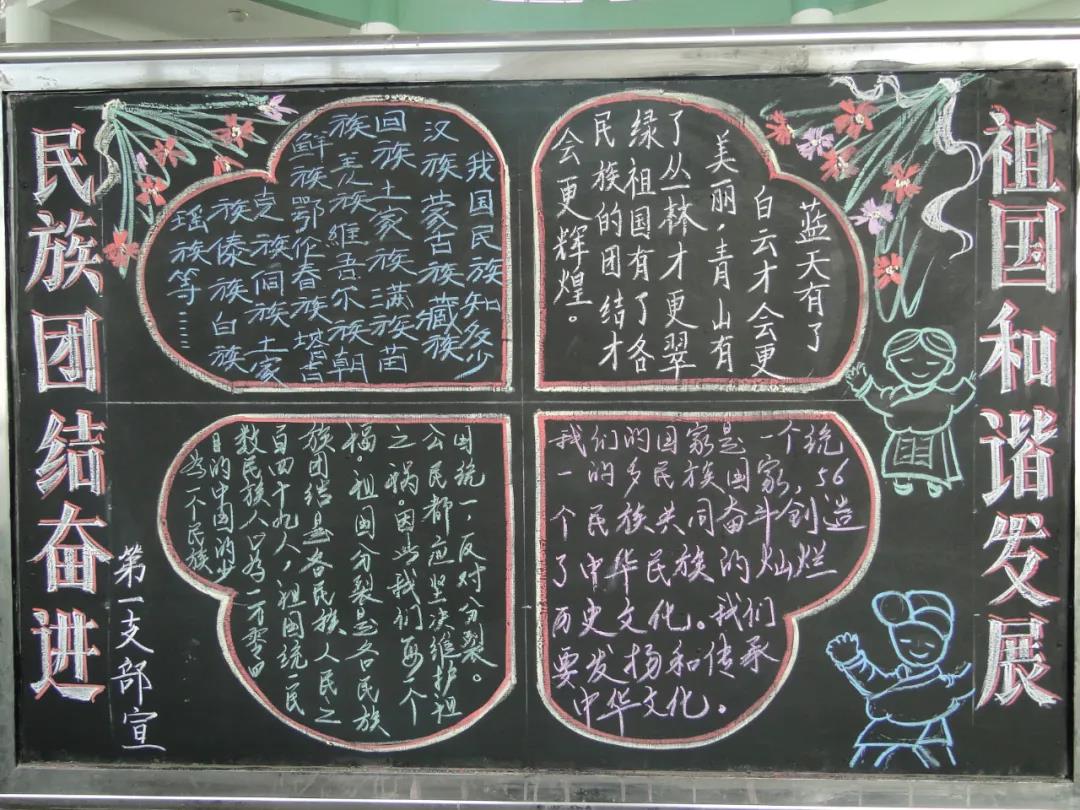 祖国和谐发展
蓝天有了
白云才会更
美丽，青山有
了丛林才更翠
绿祖国有了各
民族的团结才
会更辉煌。
我国民族知多少
汉族蒙古族藏族
回族土家族满族苗
族羌族維吾尔族朝
鲜族鄂伦春族塔吉
克族侗族土家
族傣族白族
瑶族等……
我们的国家是一个统
一的多民族国家，56
个民族共同奋斗创造
了中华民族的灿烂
历史文化。我们
要发扬和传承
中华文化。
为一个民族
的中国的少
数民族人口为一万零四
百四十九人，祖国统一民
族团结是各民族人民之
福。祖国分裂是各民族
之祸。因此我们每个
公民都应坚决维护祖
国统一，反对分裂。
民族团结奋进
第一支部宣